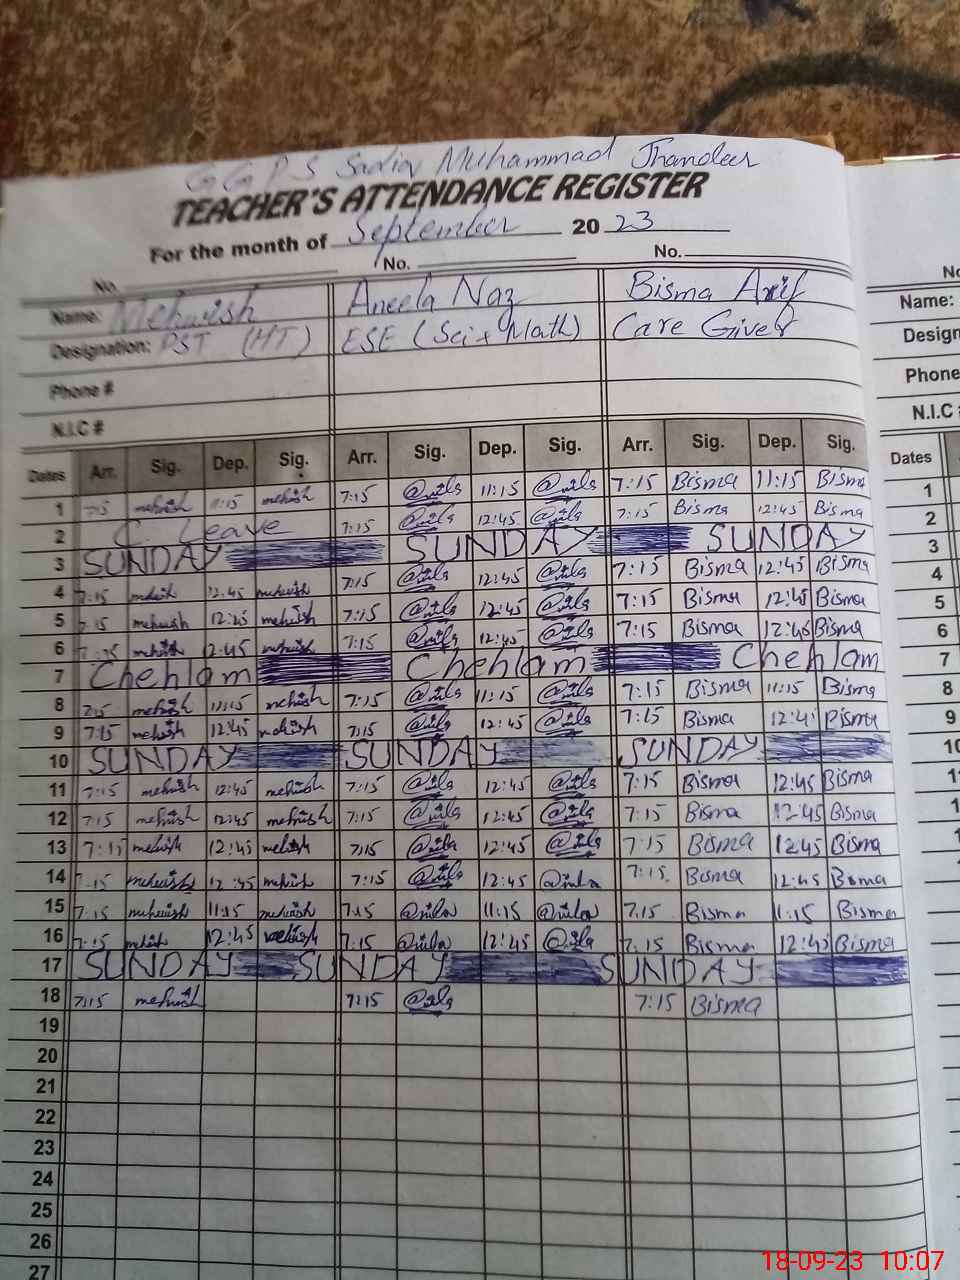 GGPS Sadiq Muhammad Jhandeer
TEACHER'S ATTENDANCE REGISTER
For the month of September 2023
No. No. No.
Name: Mehwish Aneela Naz Bisma Arif Name:
Designation: PST (HT) ESE (Sci + Math) Care Giver Design
Phone # Phone
N.I.C # N.I.C
Dates Arr. Sig. Dep. Sig. Arr. Sig. Dep. Sig. Arr. Sig. Dep. Sig. Dates
1 7:15 mehwish 11:15 mehwish 7:15 @nila 11:15 @nila 7:15 Bisma 11:15 Bisma 1
2 C. Leave 7:15 @nila 12:45 @nila 7:15 Bisma 12:45 Bisma 2
3 SUNDAY SUNDAY SUNDAY 3
4 7:15 mehwish 12:45 mehwish 7:15 @nila 12:45 @nila 7:15 Bisma 12:45 Bisma 4
5 7:15 mehwish 12:45 mehwish 7:15 @nila 12:45 @nila 7:15 Bisma 12:45 Bisma 5
6 7:15 mehwish 12:45 mehwish 7:15 @nila 12:45 @nila 7:15 Bisma 12:45 Bisma 6
7 Chehlam Chehlam Chehlam 7
8 7:15 mehwish 11:15 mehwish 7:15 @nila 11:15 @nila 7:15 Bisma 11:15 Bisma 8
9 7:15 mehwish 12:45 mehwish 7:15 @nila 12:45 @nila 7:15 Bisma 12:4 Bisma 9
10 SUNDAY SUNDAY SUNDAY 10
11 7:15 mehwish 12:45 mehwish 7:15 @nila 12:45 @nila 7:15 Bisma 12:45 Bisma
12 7:15 mehwish 12:45 mehwish 7:15 @nila 12:45 @nila 7:15 Bisma 12:45 Bisma
13 7:15 mehwish 12:45 mehwish 7:15 @nila 12:45 @nila 7:15 Bisma 12:45 Bisma
14 7:15 mehwish 12:45 mehwish 7:15 @nila 12:45 @nila 7:15 Bisma 12:45 Bisma
15 7:15 mehwish 11:15 mehwish 7:15 @nila 11:15 @nila 7:15 Bisma 11:15 Bisma
16 7:15 mehwish 12:45 mehwish 7:15 @nila 12:45 @nila 7:15 Bisma 12:45 Bisma
17 SUNDAY SUNDAY SUNDAY
18 7:15 mehwish 7:15 @nila 7:15 Bisma
19
20
21
22
23
24
25
26
27
18-09-23 10:07